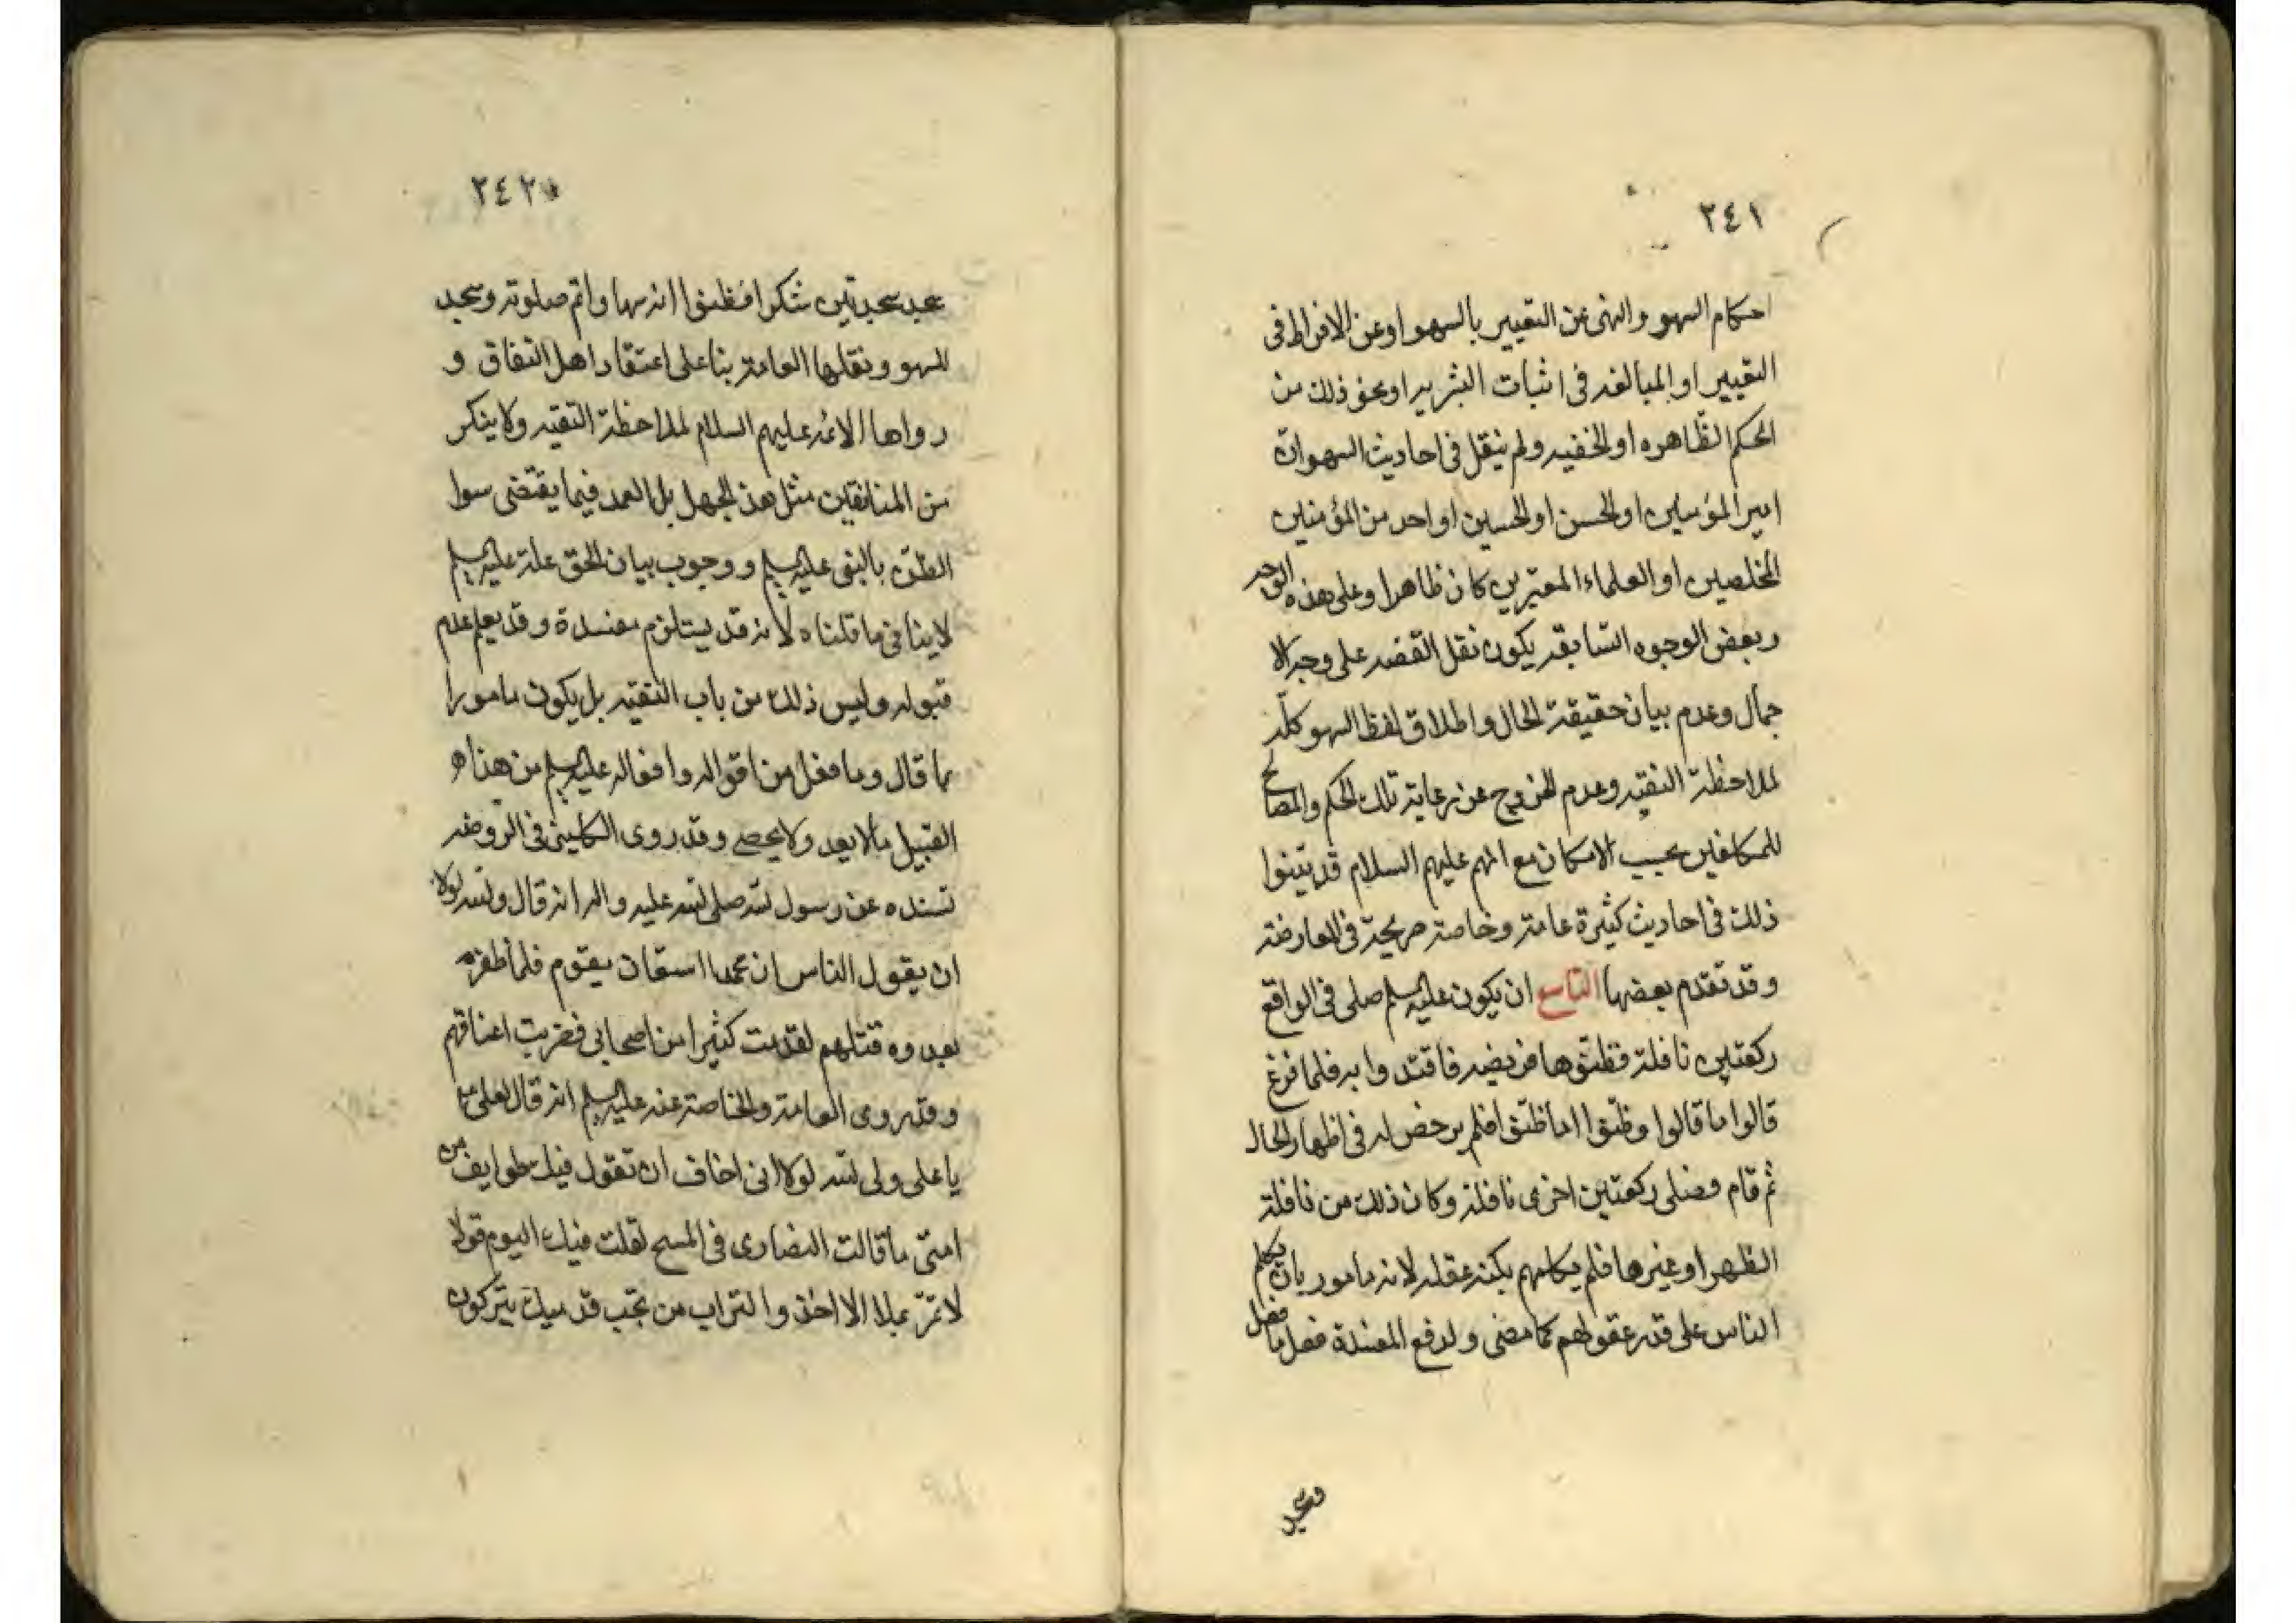 ٢٤١
احكام السهو والنهى عن التعيير بالسهو او عن الافراط فى
التعيير او المبالغه فى اثبات البشريه او نحو ذلك من
الحكم الظاهره او الخفيه ولم ينقل فى احاديث السهو ان
امير المؤمنين او الحسن او الحسين او احد من المؤمنين
المخلصين او العلماء المعتبرين كان ظاهرا وعلى هذه الوجه
وبعض الوجوه السابقه يكون نقل القصه على وجه الا
جمال وعدم بيان حقيقة الحال واطلاق لفظ السهو كله
لملاحظة التقيه وعدم الخروج عن رعاية تلك الحكم والمصالح
للمكلفين بحسب الامكان مع انهم عليهم السلام قد بينوا
ذلك فى احاديث كثيرة عامة وخاصة صريحة فى المعارضة
وقد تقدم بعضها التاسع ان يكون عليه السلم صلى فى الواقع
ركعتين نافلة فظنوها فريضه فاقتدوا به فلما فرغ
قالوا ما قالوا وظنوا ما ظنوا فلم يرخص له فى اظهار الحال
ثم قام فصلى ركعتين اخرى نافلة وكان ذلك من نافلة
الظهر او غيرها فلم يكلمهم بكنه عقله لانه مامور بان يكلم
الناس على قدر عقولهم كما مضى ولدفع المفسدة فعل ما فعل
وسجد
٢٤٢
سجد سجدتين شكرا فظنوا انه سها واتم صلوته وسجد
للسهو ونقلها العامة بنا على اعتقاد اهل النفاق و
رواها الائمه عليهم السلام لملاحظة التقيه ولا ينكر
من المنافقين مثل هذ الجهل بل العمد فيما يقتضى سوا
الظن بالنبى عليه السلم ووجوب بيان الحق علة عليه السلم
لا ينافى ما قلناه لانه قد يستلزم مفسدة وقد يعلم عدم
قبوله وليس ذلك من باب التقيه بل يكون مامورا
بما قال وما فعل من اقواله وافعاله عليه السلم من هذا
القبيل ما لا يعد ولا يحصى وقد روى الكلينى فى الروضه
بسنده عن رسول الله صلى الله عليه واله انه قال والله لولا
ان يقول الناس ان محمدا استعان بقوم فلما ظفر
بعدوه قتلهم لقدمت كثيرا من اصحابى فضربت اعناقهم
وقد روى العامة والخاصة عنه عليه السلم انه قال لعلى
يا على ولى الله لولا انى اخاف ان تقول فيك طوايف من
امتى ما قالت النصارى فى المسيح لقلت فيك اليوم قولا
لا تمر بملا الا اخذوا التراب من تحت قدميك يتبركون